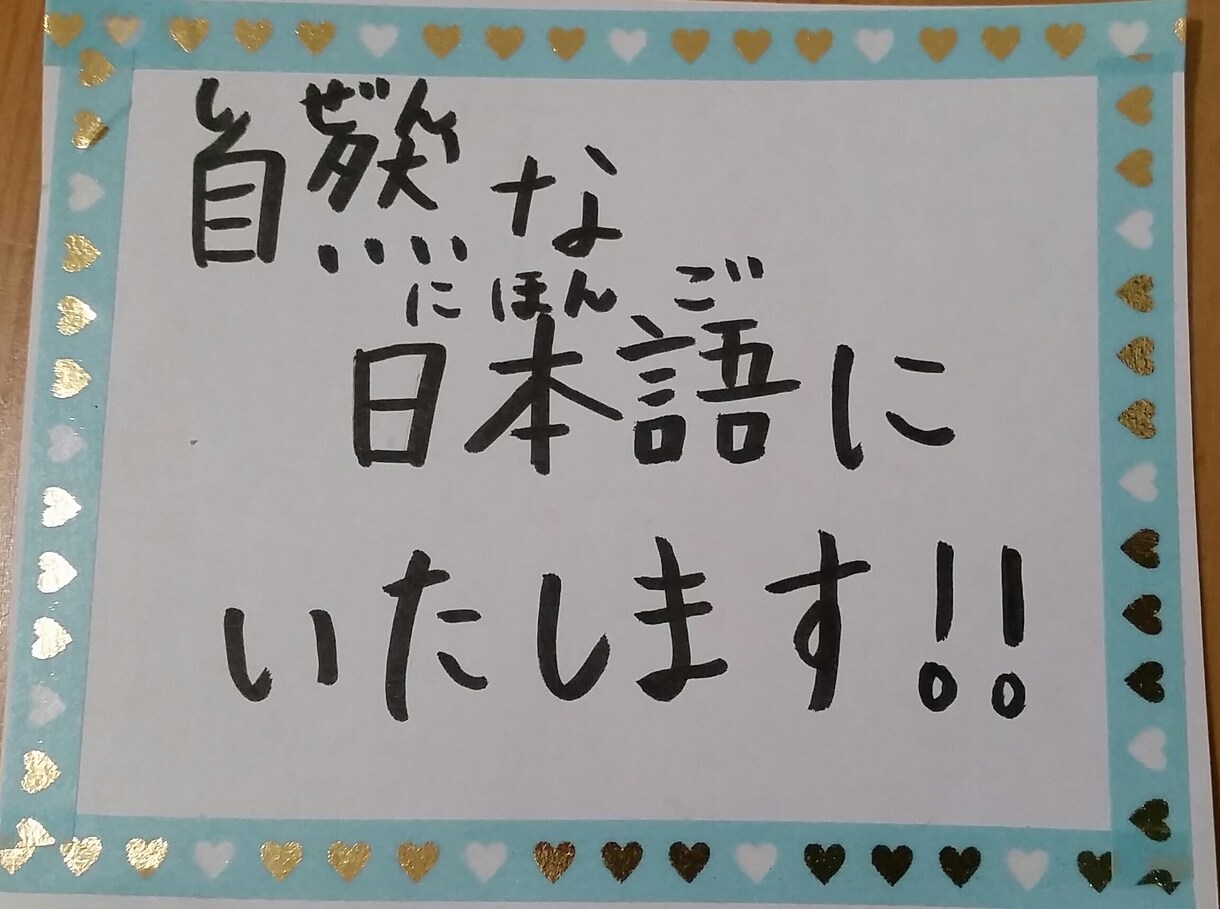 しぜん
自然な
にほんご
日本語に
いたします!!